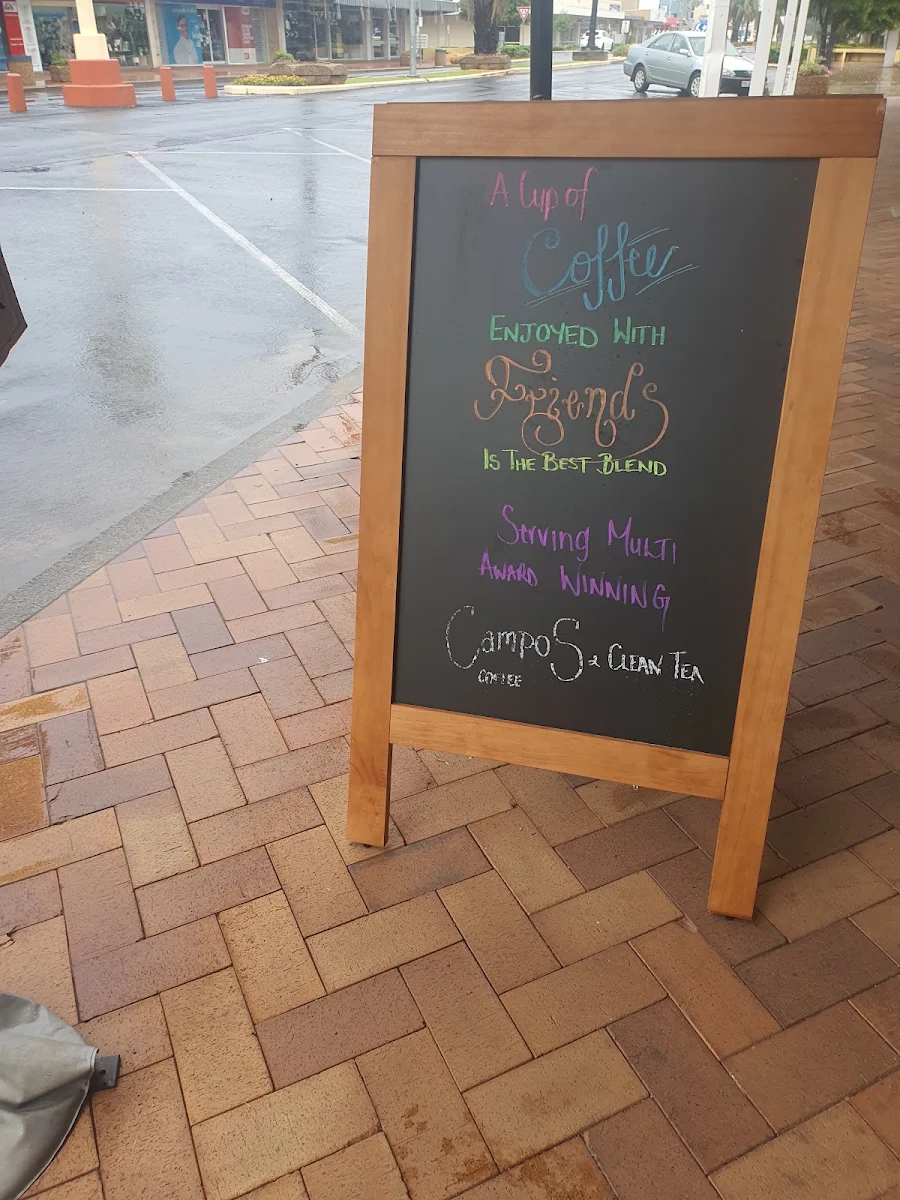 A Cup of
Coffee
ENJOYED WITH
Friends
IS THE BEST BLEND
Serving MULTI
AWARD WINNING
CampoS & CLEAN TEA
COFFEE